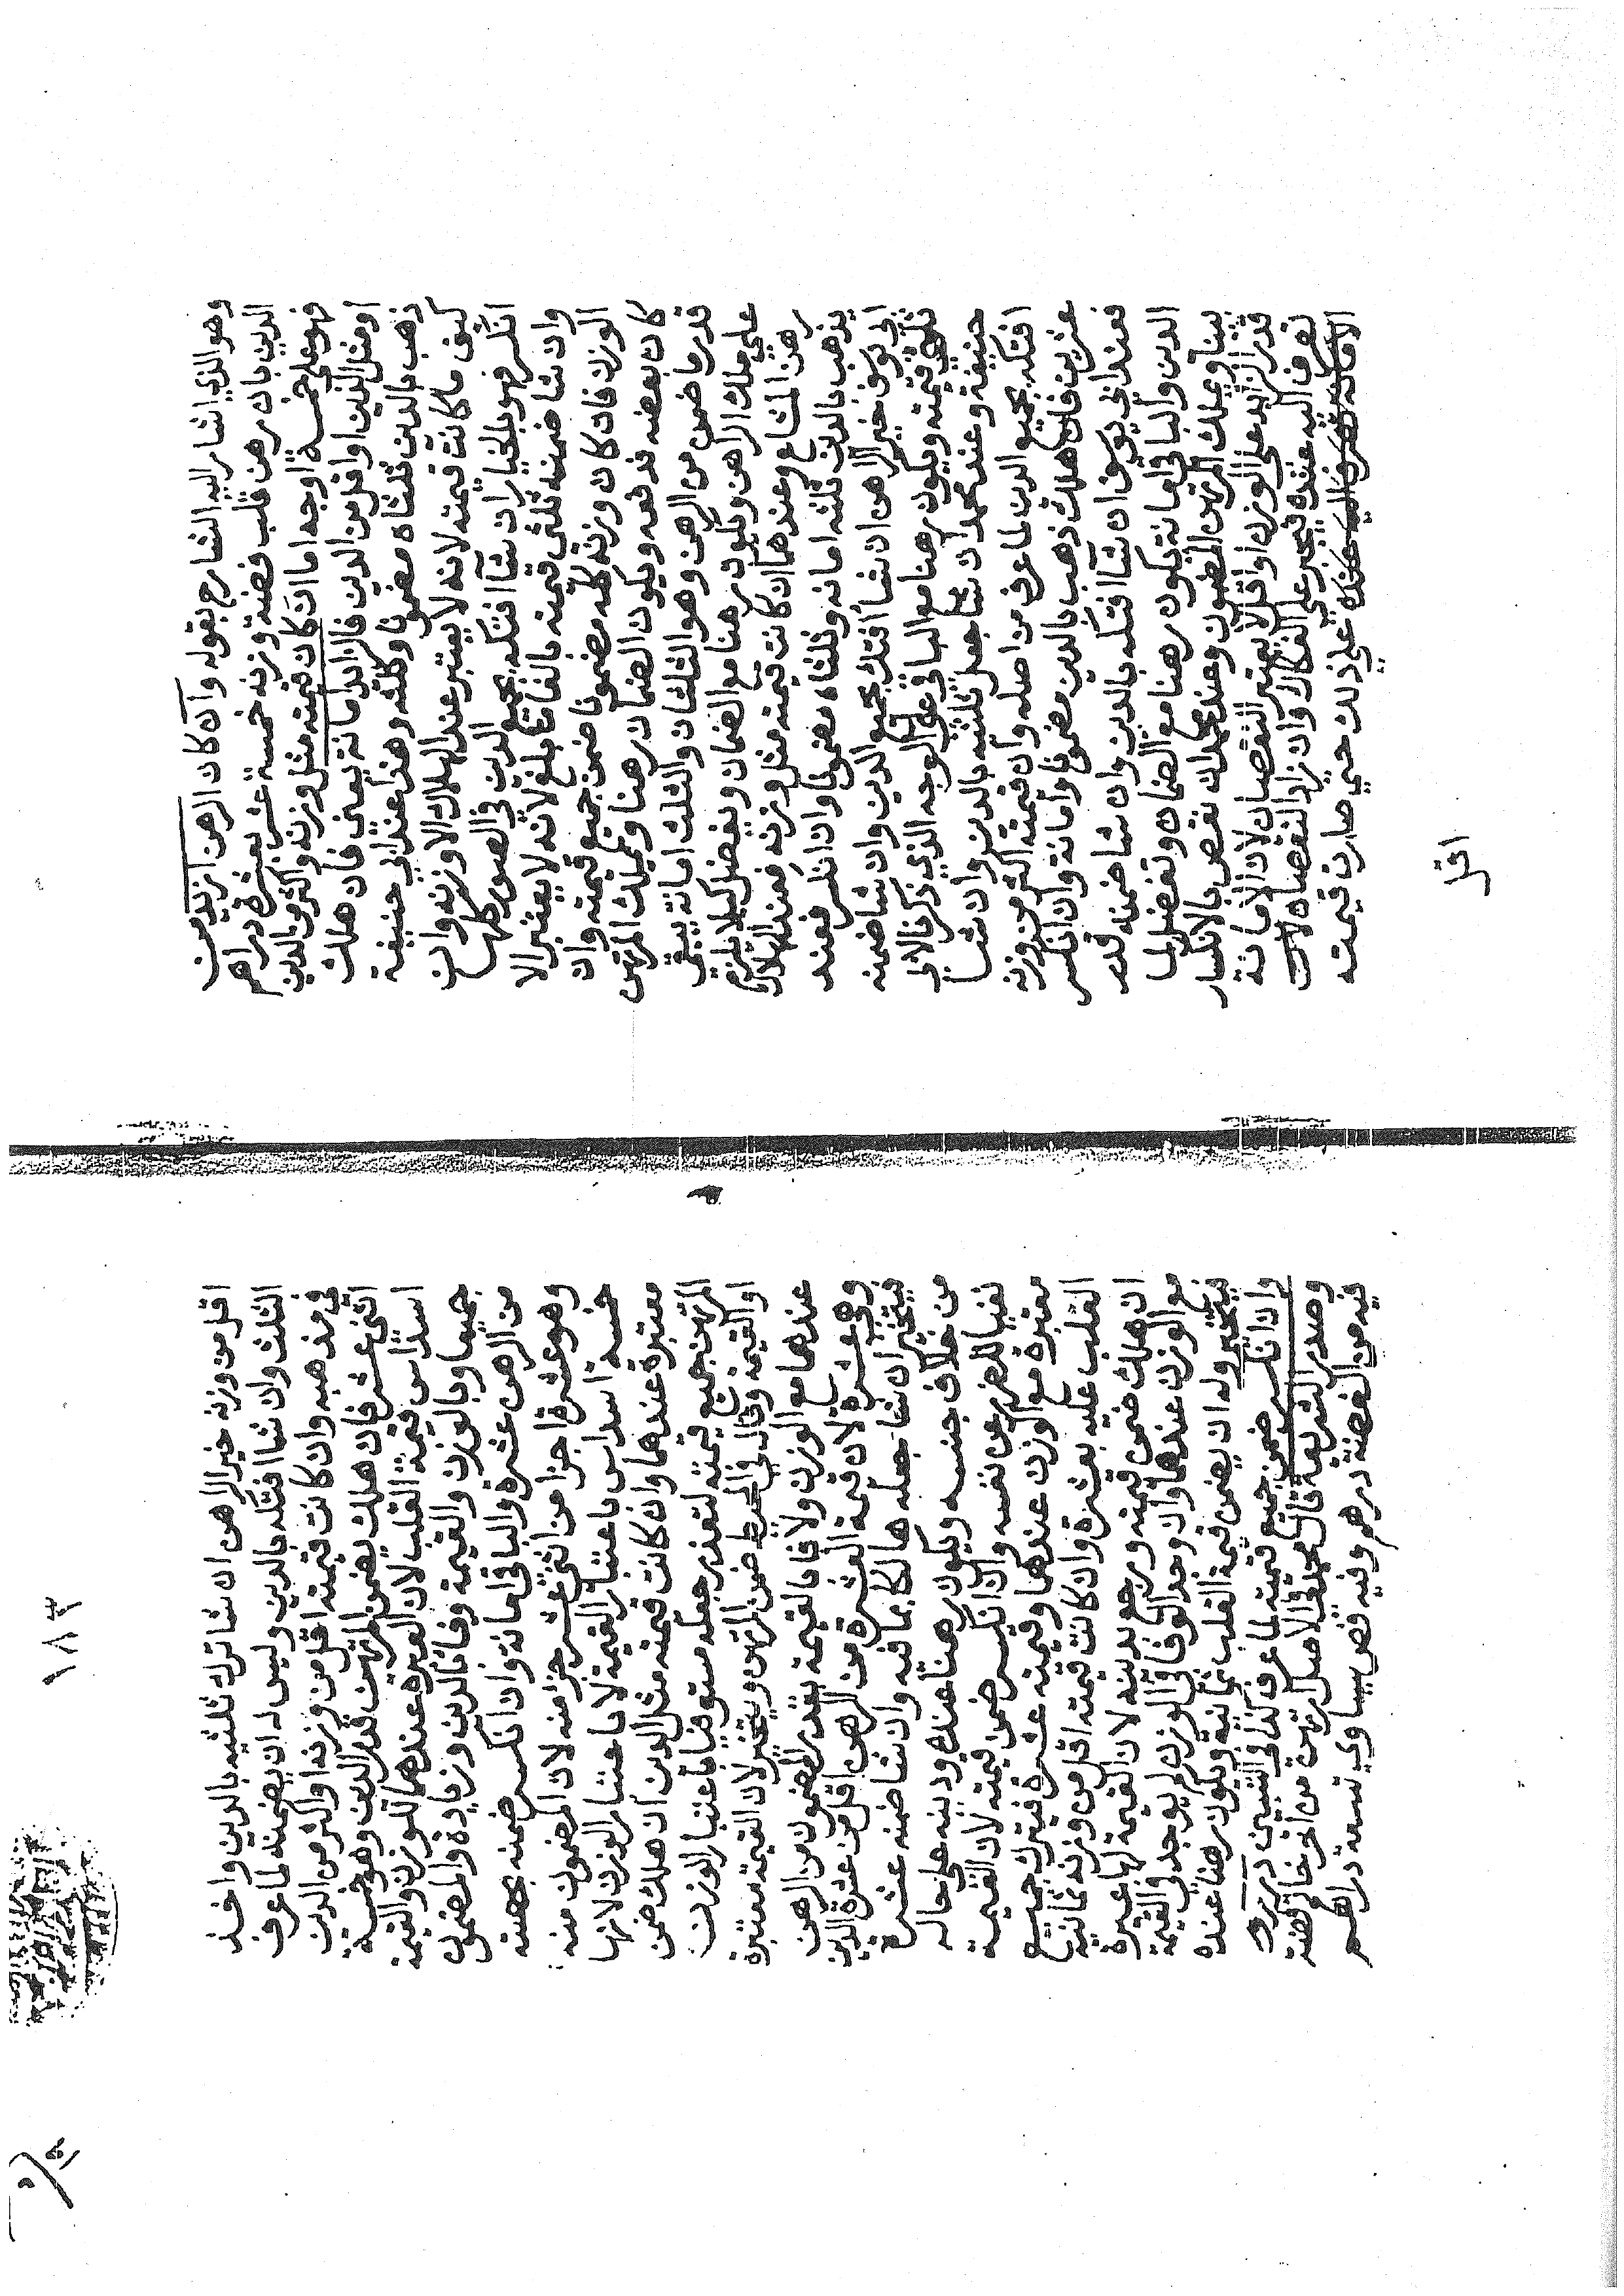 وهو الذي اشار اليه الشارح بقوله وان كان الرهن ازيد من
الدين بان رهن قلب فضة وزنه خمسة عشر بعشرة دراهم
فهو على خمسة اوجه اما ان كان قيمته مثل وزنه واكثر من الدين
او مثل الدين او اقل من الدين فالزايد امانة يعني فان هلك
ذهب بالدين ثلثاه مضمونا وثلثه وهذا عند ابي حنيفة
كيف ما كانت قيمته لانه لا يعتبر عند الهلاك الا وزنه وان
انكسر فهو بالخيار ان شاا افتكه بجميع الدين في الصور كلها
وان شا ضمنه ثلثي قيمته بالغا ما بلغ لانه لا يعتبر الا
الوزن فان كان وزنه كله مضمونا ضمن جميع قيمته وان
كان بعضه فد فعه ويكون الضمان رهنا ويملك المرتهن
قدر ما ضمن من الرهن وهو الثلثان والثلث امانة يبقى
على ملك الراهن ويكون رهنا مع الضمان ويفضل كيلا يلزم
رهن المشاع وعندهما ان كانت قيمته مثل وزنه فعند الهلاك
يذهب بالدين ثلثه امانه وثلثاه مضمونا وان انكسر فعند
ابي يوسف خير الراهن ان شاا افتك بجميع الدين وان شا ضمنه
ثلثي قيمته ويكون رهنا مع الباقي على الوجه الذي ذكرنا لابي
حنيفة وعند محمد ان شا جعل ثلثيه بالدين وان شا
افتكه بجميع الدين لما عرف من اصله وان قيمته اكثر من وزنه
عشرين فان هلك ذهب بالدين مضمونا وامانة وان انكسر
فعند ابي يوسف ان شاا افتكه بالدين وان شا ضمنه قدر
الدين والباقي امانة يكون رهنا مع الضمان وتفضل لما
بينا ويملك المرتهن المضمون وعند محمد ان نقص بالانكسار
قدر الزايد على الوزن او اقل لا يعتبر النقصان لان الامانة
تصرف اليه عنده فيجبر على الفكاك وان زاد النقصان لان
الامانة تصرف اليه عنده على ذلك حتى صارت قيمته
اقل
١٨٣
اقل من وزنه خير الراهن ان شا ترك ثلثيه بالدين واخذ
الثلث وان شاا افتكه بالدين وليس له ان يضمنه لما عرف
في مذهبه وان كانت قيمته اقل من وزنه واكثر من الدين
اثني عشر فان هلك يضمن المرتهن قدر الدين وهو خمسة
اسداس قيمة القلب لان العبرة عندهما للوزن والقيمة
جميعا وبالوزن والقيمة وفا بالدين وزيادة والمضمون
من الرهن عشرة والباقي امانة وان انكسر ضمنه بحصته
وهو عشرة اجزا من اثني عشر جزا منه لان المضمون منه
خمسة اسداس باعتبار القيمة لا باعتبار الوزن لانها
معتبرة عندهما وان كانت قيمته مثل الدين ان هلك ضمن
المرتهن جميع قيمته لتعذر جعله مستوفيا باعتبار الوزن
او القيمة وقال في المحيط ضمن المرتهن ويتخير لان القيمة معتبرة
عندهما مع الوزن ولا وفا بالقيمة بقدر المضمون من الرهن
وهي عشرة لان قيمة العشرة من الرهن اقل من عشرة الدين
فيتخير ان شا جعله هالكا بما فيه وان شا ضمنه عشرة
من خلاف جنسه ويكون رهنا عنده ودينه على حاله
نفيا للضرر عن نفسه وان انكسر ضمن قيمته لان القيمة
معتبرة مع الوزن عندهما وقيمته عشرة فيترك جميع
القلب عليه بعشرة وان كانت قيمته اقل من وزنه ثمانية
ان هلك ضمن قيمته ورجع بدينه لان القيمة لها عبرة
مع الوزن عندهما وان وجد الوفا في الوزن لم يوجد في القيمة
فيتخير وله ان يضمن قيمة القلب ثمانية ويكون رهنا عنده
وان انكسر ضمن جميع قيمته لما عرف كذا في التبيين درر
وصدر الشريعة قال محمد في الاصل ارتهن من اخر خاتم فضة
فيه من الفضة درهم وفيه فص يساوي تسعة دراهم